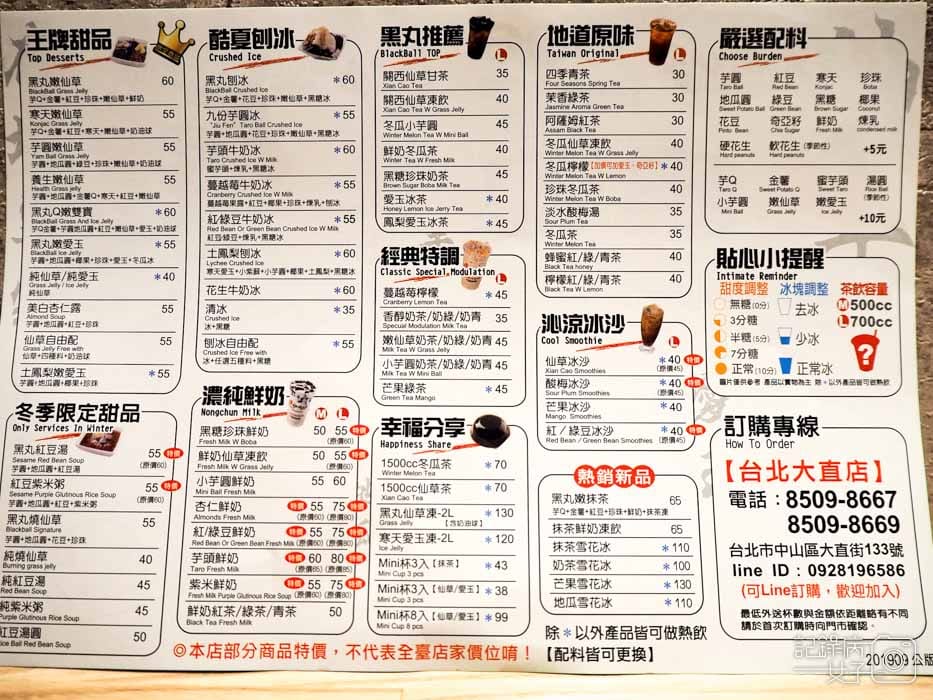 王牌甜品
Top Desserts
黑丸嫩仙草 60
BlackBall Grass Jelly
芋Q+金薯+紅豆+珍珠+嫩仙草+鮮奶
寒天嫩仙草 55
Konjac Grass Jelly
芋Q+金薯+紅豆+寒天+嫩仙草+奶油球
芋圓嫩仙草 55
Yam Ball Grass Jelly
芋圓+地瓜圓+綠豆+珍珠+嫩仙草+奶油球
養生嫩仙草 55
Health Grass jelly
芋圓+地瓜圓+金薯Q+寒天+紅豆+嫩仙草
黑丸Q嫩雙寶 *60
BlackBall Grass And Ice Jelly
金薯Q+芋圓地瓜圓+紅豆+嫩仙草+愛玉+奶油球
黑丸嫩愛玉 *55
BlackBall Ice Jelly
芋圓+地瓜圓+椰果+珍珠+愛玉+冬瓜冰
純仙草/純愛玉 *40
Grass Jelly / Ice Jelly
純仙草
美白杏仁露 55
Almond Soup
芋圓+地瓜圓+紅豆+珍珠
仙草自由配 55
Grass Jelly Free with
仙草+四種料+奶油球
土鳳嫩愛玉 *55
芋圓+地瓜圓+椰果+珍珠
冬季限定甜品
Only Services In Winter
黑丸紅豆湯 55 特價
Sesame Red Bean Soup (原價60)
芋圓+地瓜圓+紅豆湯
紅豆紫米粥 55 特價
Sesame Purple Glutinous Rice Soup (原價60)
芋圓+地瓜圓+紅豆+紫米粥
黑丸燒仙草 55
Blackball Signature
芋圓+地瓜圓+花豆+珍珠
純燒仙草 40
Burning grass jelly
純紅豆湯 45
Red Bean Soup
純紫米粥 45
Purple Glutinous Rice Soup
紅豆湯圓 50
Ice Ball Red Bean Soup
酷夏刨冰
Crushed Ice
黑丸刨冰 *60
BlackBall Crushed Ice
芋Q+金薯+花豆+珍珠+嫩仙草+黑糖冰
九份芋圓冰 *55
"Jiu Fen" Taro Ball Crushed Ice
芋圓+地瓜圓+花豆+珍珠+嫩仙草+黑糖冰
芋頭牛奶冰 *60
Taro Crushed Ice W Milk
蜜芋頭+煉乳+黑糖冰
蔓越莓牛奶冰 *60
Cranberry Crushed Ice W Milk
蔓越莓果露+紅豆+椰果+珍珠+煉乳+刨冰
紅/綠豆牛奶冰 *55
Red Bean Or Green Bean Crushed Ice W Milk
紅豆/綠豆+煉乳+黑糖冰
土鳳梨刨冰 *60
Lychee Crushed Ice
寒天愛玉+小紫蘇+小芋圓+椰果+土鳳梨+黑糖冰
花生牛奶冰 *60
清冰 *35
Crushed Ice
冰+黑糖
刨冰自由配 *55
Crushed Ice Free with
冰+任選五種料+黑糖
濃純鮮奶 M L
Nongchun Milk
黑糖珍珠鮮奶 50 55 特價
Fresh Milk W Boba (原價60)
鮮奶仙草凍飲 50 55 特價
Fresh Milk W Grass Jelly (原價60)
小芋圓鮮奶 55 60
Mini Ball Fresh Milk
杏仁鮮奶 特價 55 75 特價
Almonds Fresh Milk (原價60) (原價80)
紅/綠豆鮮奶 特價 55 75 特價
Red Bean Or Green Bean Fresh Milk (原價60) (原價80)
芋頭鮮奶 特價 60 80 特價
Taro Fresh Milk (原價65) (原價85)
紫米鮮奶 特價 55 75 特價
Fresh Milk Purple Glutinous Rice Soup (原價60) (原價80)
鮮奶紅茶/綠茶/青茶 50
Black Tea Fresh Milk
黑丸推薦 L
BlackBall TOP
關西仙草甘茶 35
Xian Cao Tea
關西仙草凍飲 40
Xian Cao Tea W Grass Jelly
冬瓜小芋圓 45
Winter Melon Tea W Mini Ball
鮮奶冬瓜茶 45
Winter Tea W Fresh Milk
黑糖珍珠奶茶 45
Brown Sugar Boba Milk Tea
愛玉冰茶 *40
Honey Lemon Ice Jerry Tea
鳳梨愛玉冰茶 *45
經典特調 L
Classic Special Modulation
蔓越莓檸檬 *45
Cranberry Lemon Tea
香醇奶茶/奶綠/奶青 35
Specual Modulation Milk Tea
嫩仙草奶茶/奶綠/奶青 45
Milk Tea W Grass Jelly
小芋圓奶茶/奶綠/奶青 45
Milk Tea W Mini Ball
芒果綠茶 *45
Green Tea Mango
幸福分享
Happiness Share
1500cc冬瓜茶 *70
Winter Melon Tea
1500cc仙草茶 *70
Xian Cao Tea
黑丸仙草凍-2L *130
Grass Jelly 【含奶油球】
寒天愛玉凍-2L *120
Ice Jelly
Mini杯3入【抹茶】 *43
Mini Cup 3 pcs
Mini杯3入【仙草/愛玉】 *38
Mini Cup 3 pcs
Mini杯8入【仙草/愛玉】 *99
Mini Cup 8 pcs
地道原味 L
Taiwan Original
四季青茶 30
Four Seasons Spring Tea
茉香綠茶 30
Jasmine Aroma Green Tea
阿薩姆紅茶 30
Assam Black Tea
冬瓜仙草凍飲 40
Winter Melon Tea W Grass Jelly
冬瓜檸檬【加價可加愛玉、奇亞籽】 *40
Winter Melon Tea W Lemon
珍珠冬瓜茶 40
Winter Melon Tea W Boba
淡水酸梅湯 35
Sour Plum Tea
冬瓜茶 35
Winter Melon Tea
蜂蜜紅/綠/青茶 40
Black Tea honey
檸檬紅/綠/青茶 40
Black Tea W Lemon
沁涼冰沙 L
Cool Smoothie
仙草冰沙 *40 特價
Xian Cao Smoothies (原價45)
酸梅冰沙 *40 特價
Sour Plum Smoothies (原價45)
芒果冰沙 *40
Mango Smoothies
紅/綠豆冰沙 *40 特價
Red Bean / Green Bean Smoothies (原價45)
熱銷新品
黑丸嫩抹茶 65
芋Q+金薯+紅豆+珍珠+鮮奶+抹茶凍
抹茶鮮奶凍飲 65
抹茶雪花冰 *110
奶茶雪花冰 *100
芒果雪花冰 *130
地瓜雪花冰 *110
除*以外產品皆可做熱飲
【配料皆可更換】
嚴選配料
Choose Burden
芋圓 紅豆 寒天 珍珠
Taro Ball Red Bean Konjac Boba
地瓜圓 綠豆 黑糖 椰果
Sweet Potato Ball Green Bean Brown Sugar Coconut
花豆 奇亞籽 鮮奶 煉乳
Pinto Bean Chia Sugar Fresh Milk condensed milk
硬花生 軟花生(季節性) +5元
Hard peanuts Hard peanuts
芋Q 金薯Q 蜜芋頭 湯圓
Taro Q Sweet Potato Q Sweet Taro Rice Ball
(季節性)
小芋圓 嫩仙草 嫩愛玉
Mini Ball Grass Jelly Ice Jelly
+10元
貼心小提醒
Intimate Reminder
甜度調整 冰塊調整 茶飲容量
無糖(0分) 去冰 M500cc
3分糖 L700cc
半糖(5分) 少冰
7分糖
正常(10分) 正常冰
圖片僅供參考 產品以實物為主 除*以外產品皆可做熱飲
訂購專線
How To Order
【台北大直店】
電話：8509-8667
8509-8669
台北市中山區大直街133號
line ID：0928196586
(可Line訂購，歡迎加入)
最低外送杯數與金額依距離略有不同
請於首次訂購時向門市確認。
◎本店部分商品特價，不代表全臺店家價位唷！
201909 公版
記錄內
一女子